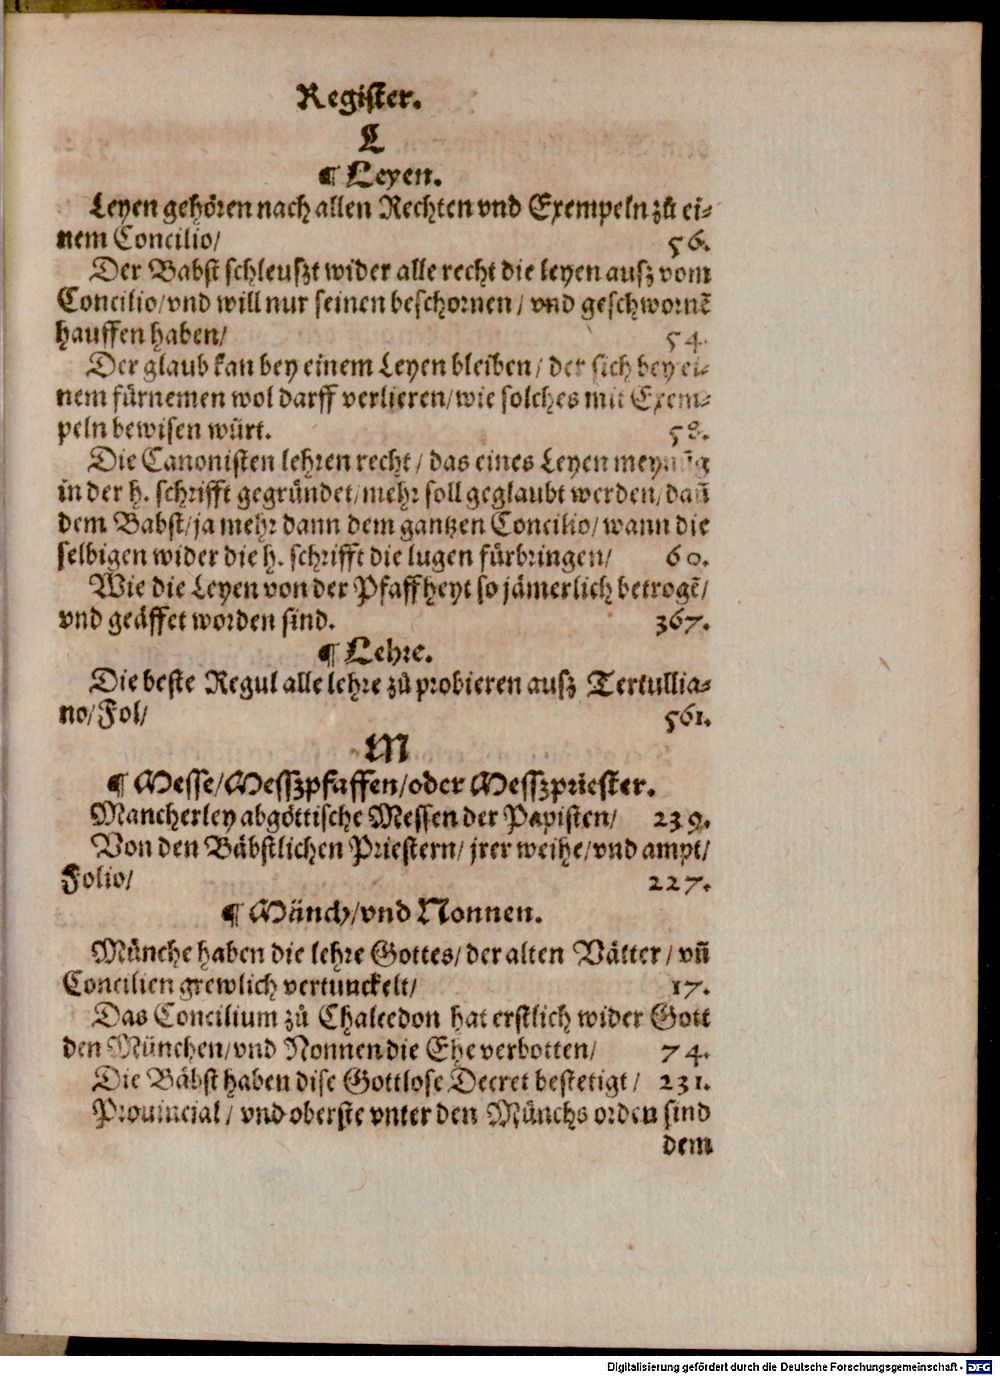 Register.
L
¶ Leyen.
Leyen gehören nach allen Rechten vnd Exempeln zů ei⸗
nem Concilio/ 56.
Der Babst schleuszt wider alle recht die leyen ausz vom
Concilio/vnd will nur seinen beschornen/ vnd geschwornẽ
hauffen haben/ 54.
Der glaub kan bey einem Leyen bleiben/ der sich bey ei⸗
nem fürnemen wol darff verlieren/wie solches mit Exem⸗
peln bewisen würt. 58.
Die Canonisten lehren recht/ das eines Leyen meynũg
in der h. schrifft gegründet/mehr soll geglaubt werden/dañ
dem Babst/ja mehr dann dem gantzen Concilio/wann die
selbigen wider die h. schrifft die lugen fürbringen/ 60.
Wie die Leyen von der Pfaffheyt so jämerlich betrogẽ/
vnd geäffet worden sind. 367.
¶ Lehre.
Die beste Regul alle lehre zů probieren ausz Tertullia⸗
no/Fol/ 561.
M
¶ Messe/Messzpfaffen/oder Messzpriester.
Mancherley abgöttische Messen der Papisten/ 239.
Von den Bäbstlichen Priestern/ jrer weihe/vnd ampt/
Folio/ 227.
¶ Münch/vnd Nonnen.
Münche haben die lehre Gottes/der alten Vätter/ vñ
Concilien grewlich vertunckelt/ 17.
Das Concilium zů Chalcedon hat erstlich wider Gott
den München/vnd Nonnen die Ehe verbotten/ 74.
Die Bäbst haben dise Gottlose Decret bestetigt/ 231.
Prouincial/ vnd oberste vnter den Münchs orden sind
dem
Digitalisierung gefördert durch die Deutsche Forschungsgemeinschaft - DFG